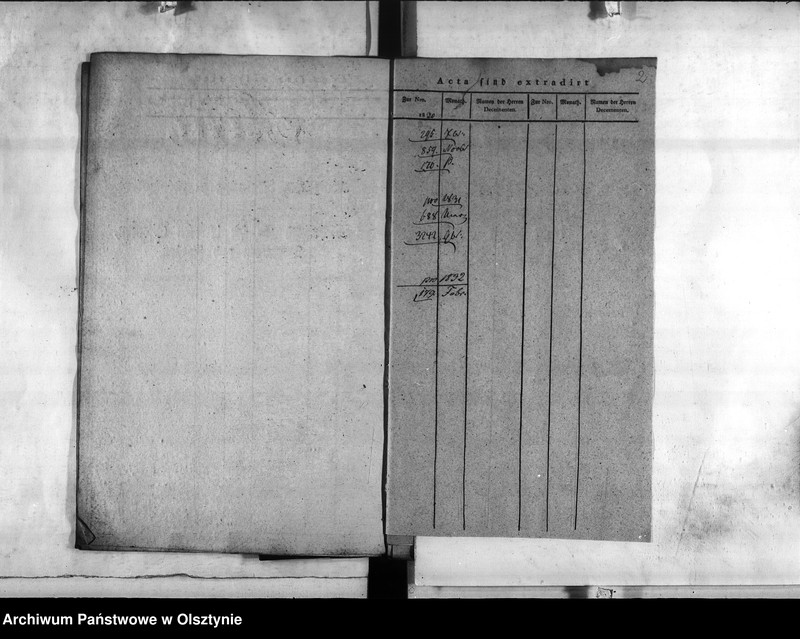 2
Acta sind extradirt
Zur Nro. Monath. Namen der Herren Decernenten. Zur Nro. Monath. Namen der Herren Decernenten.
1830
295.
859. Novbr
pro 1831
688
3242
pro 1832
Febr
Archiwum Państwowe w Olsztynie